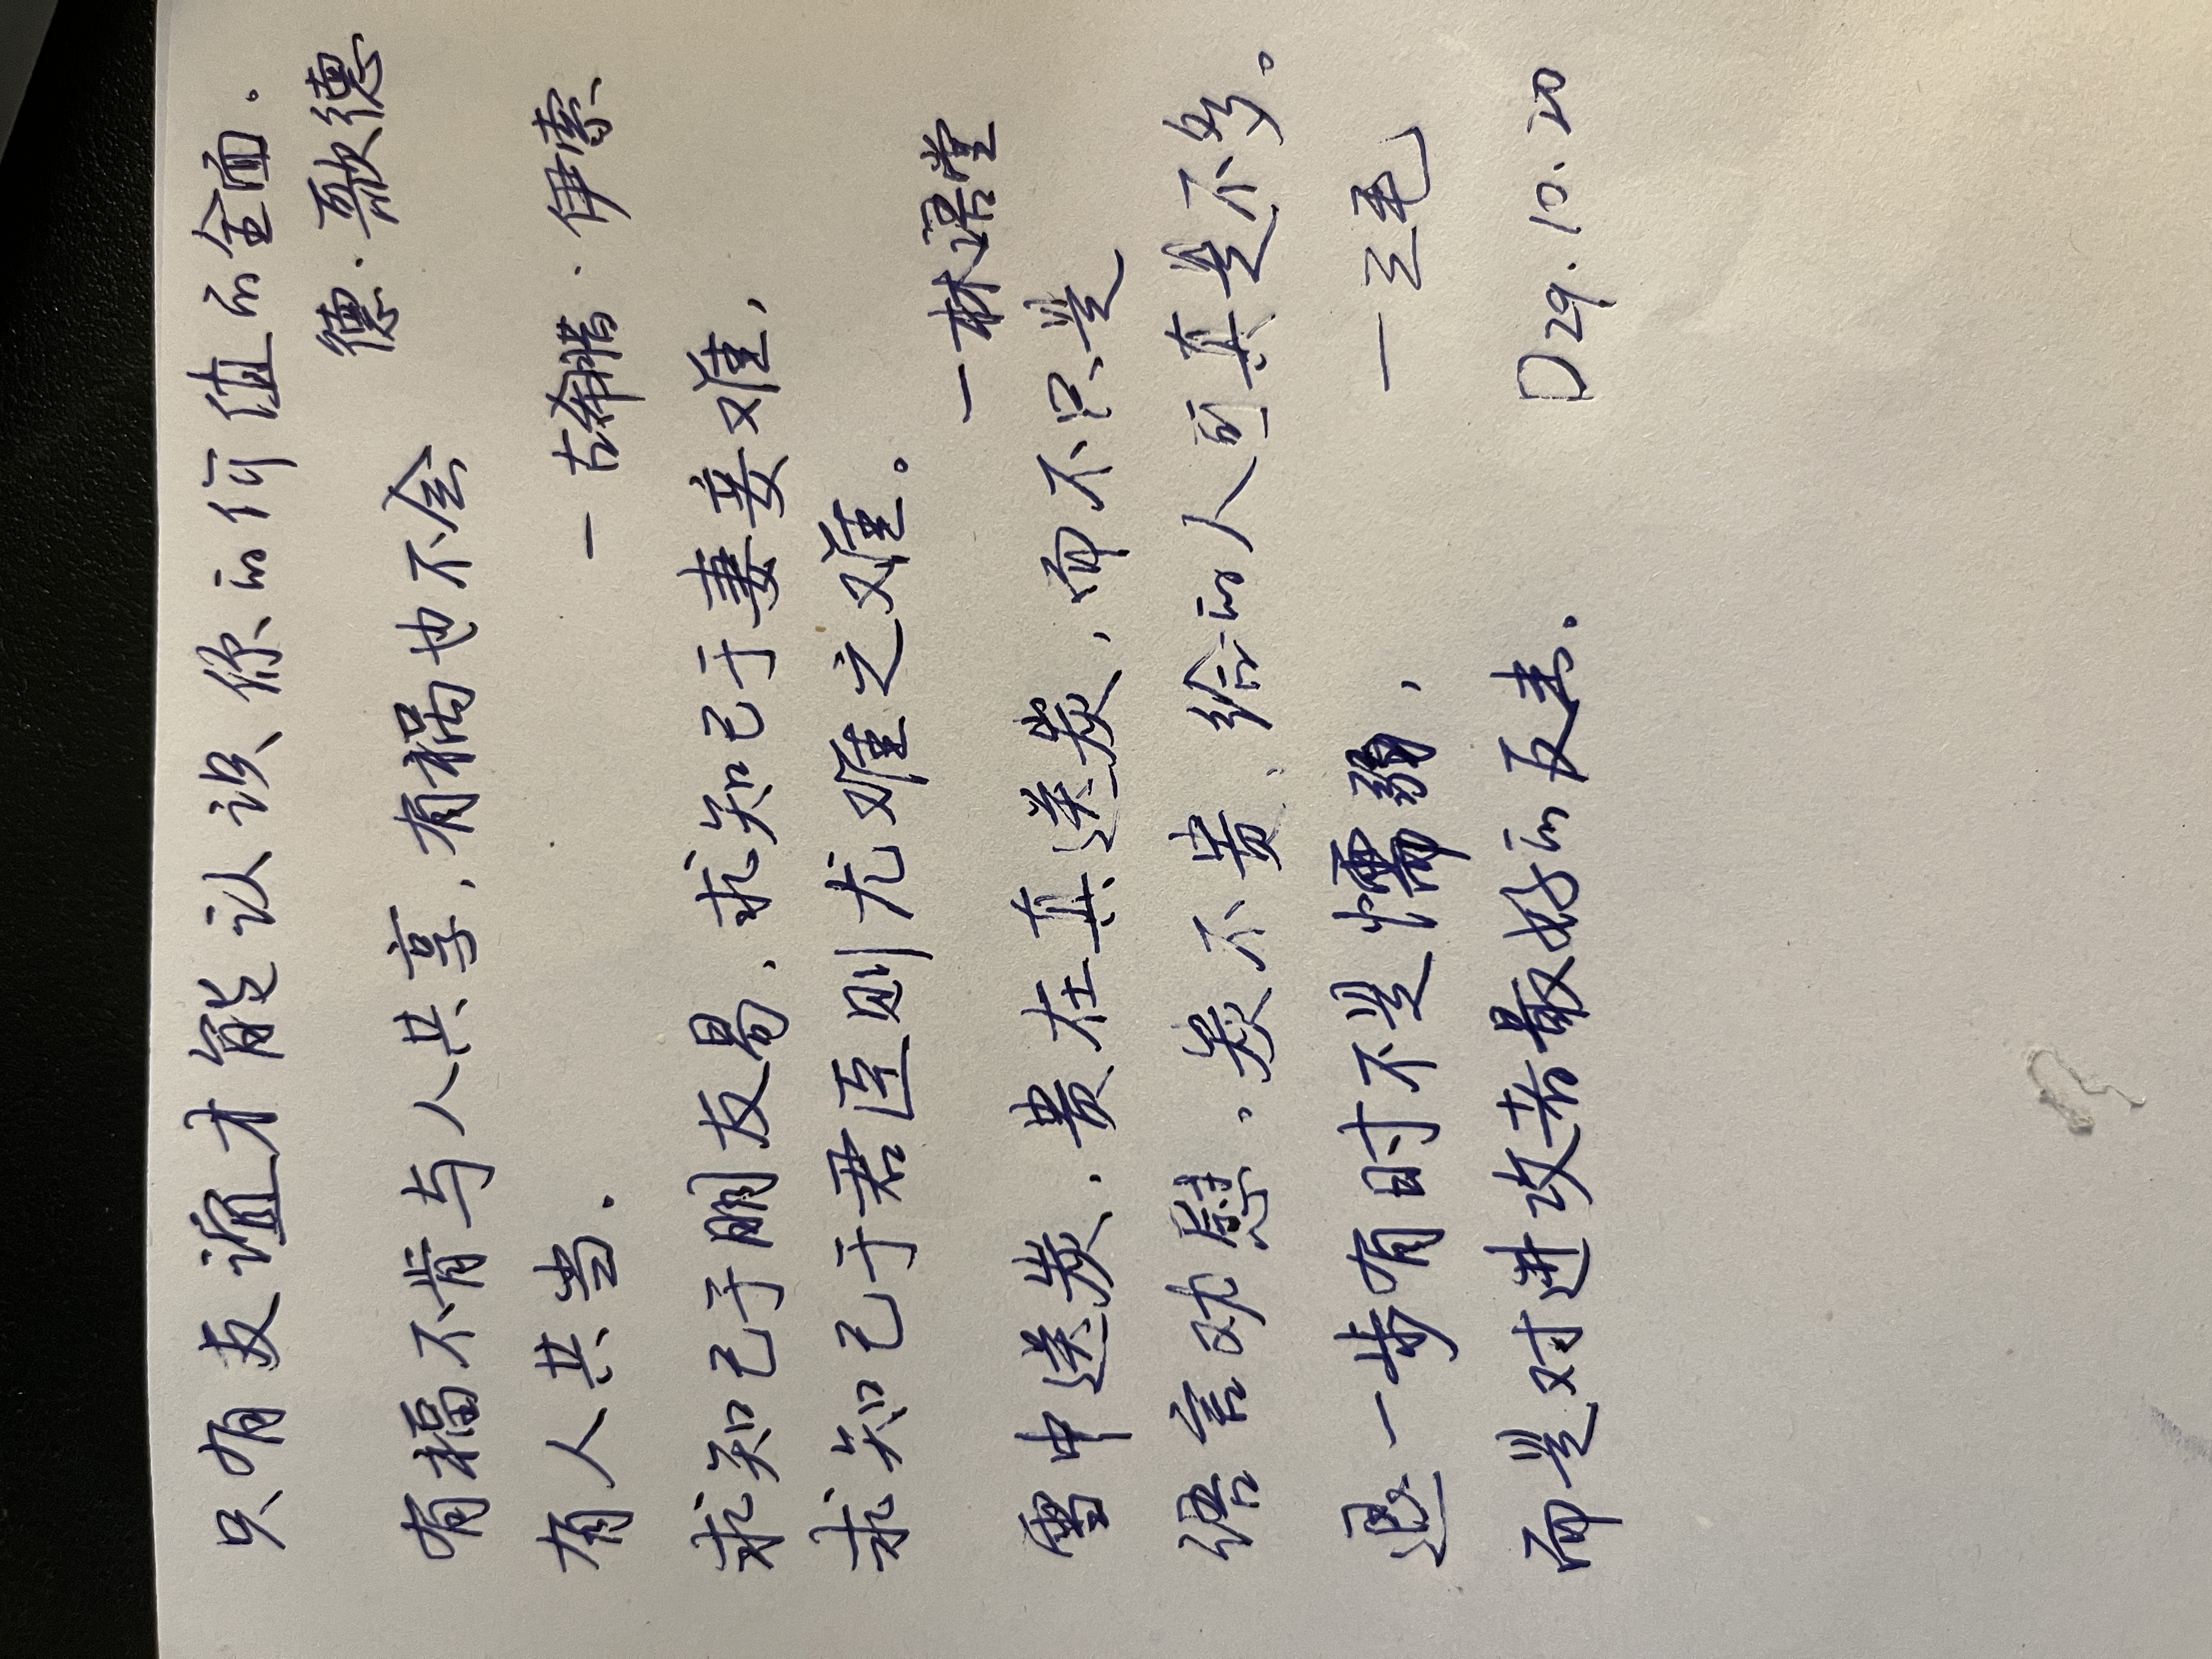 只有友谊才能认识你的价值的全面。
德·歌德
有福不肯与人共享,有祸也不会
有人共当.
一古希腊·伊索
求知己于朋友易,求知己于妻妾难,
求知己于君臣则尤难之难。
一林语堂
雪中送炭,贵在真送炭,而不只是
语言劝慰。炭不贵,给的人可真是不多。
一三毛
退一步有时不是懦弱,
而是对进攻者最好的反击.
D29.10.20